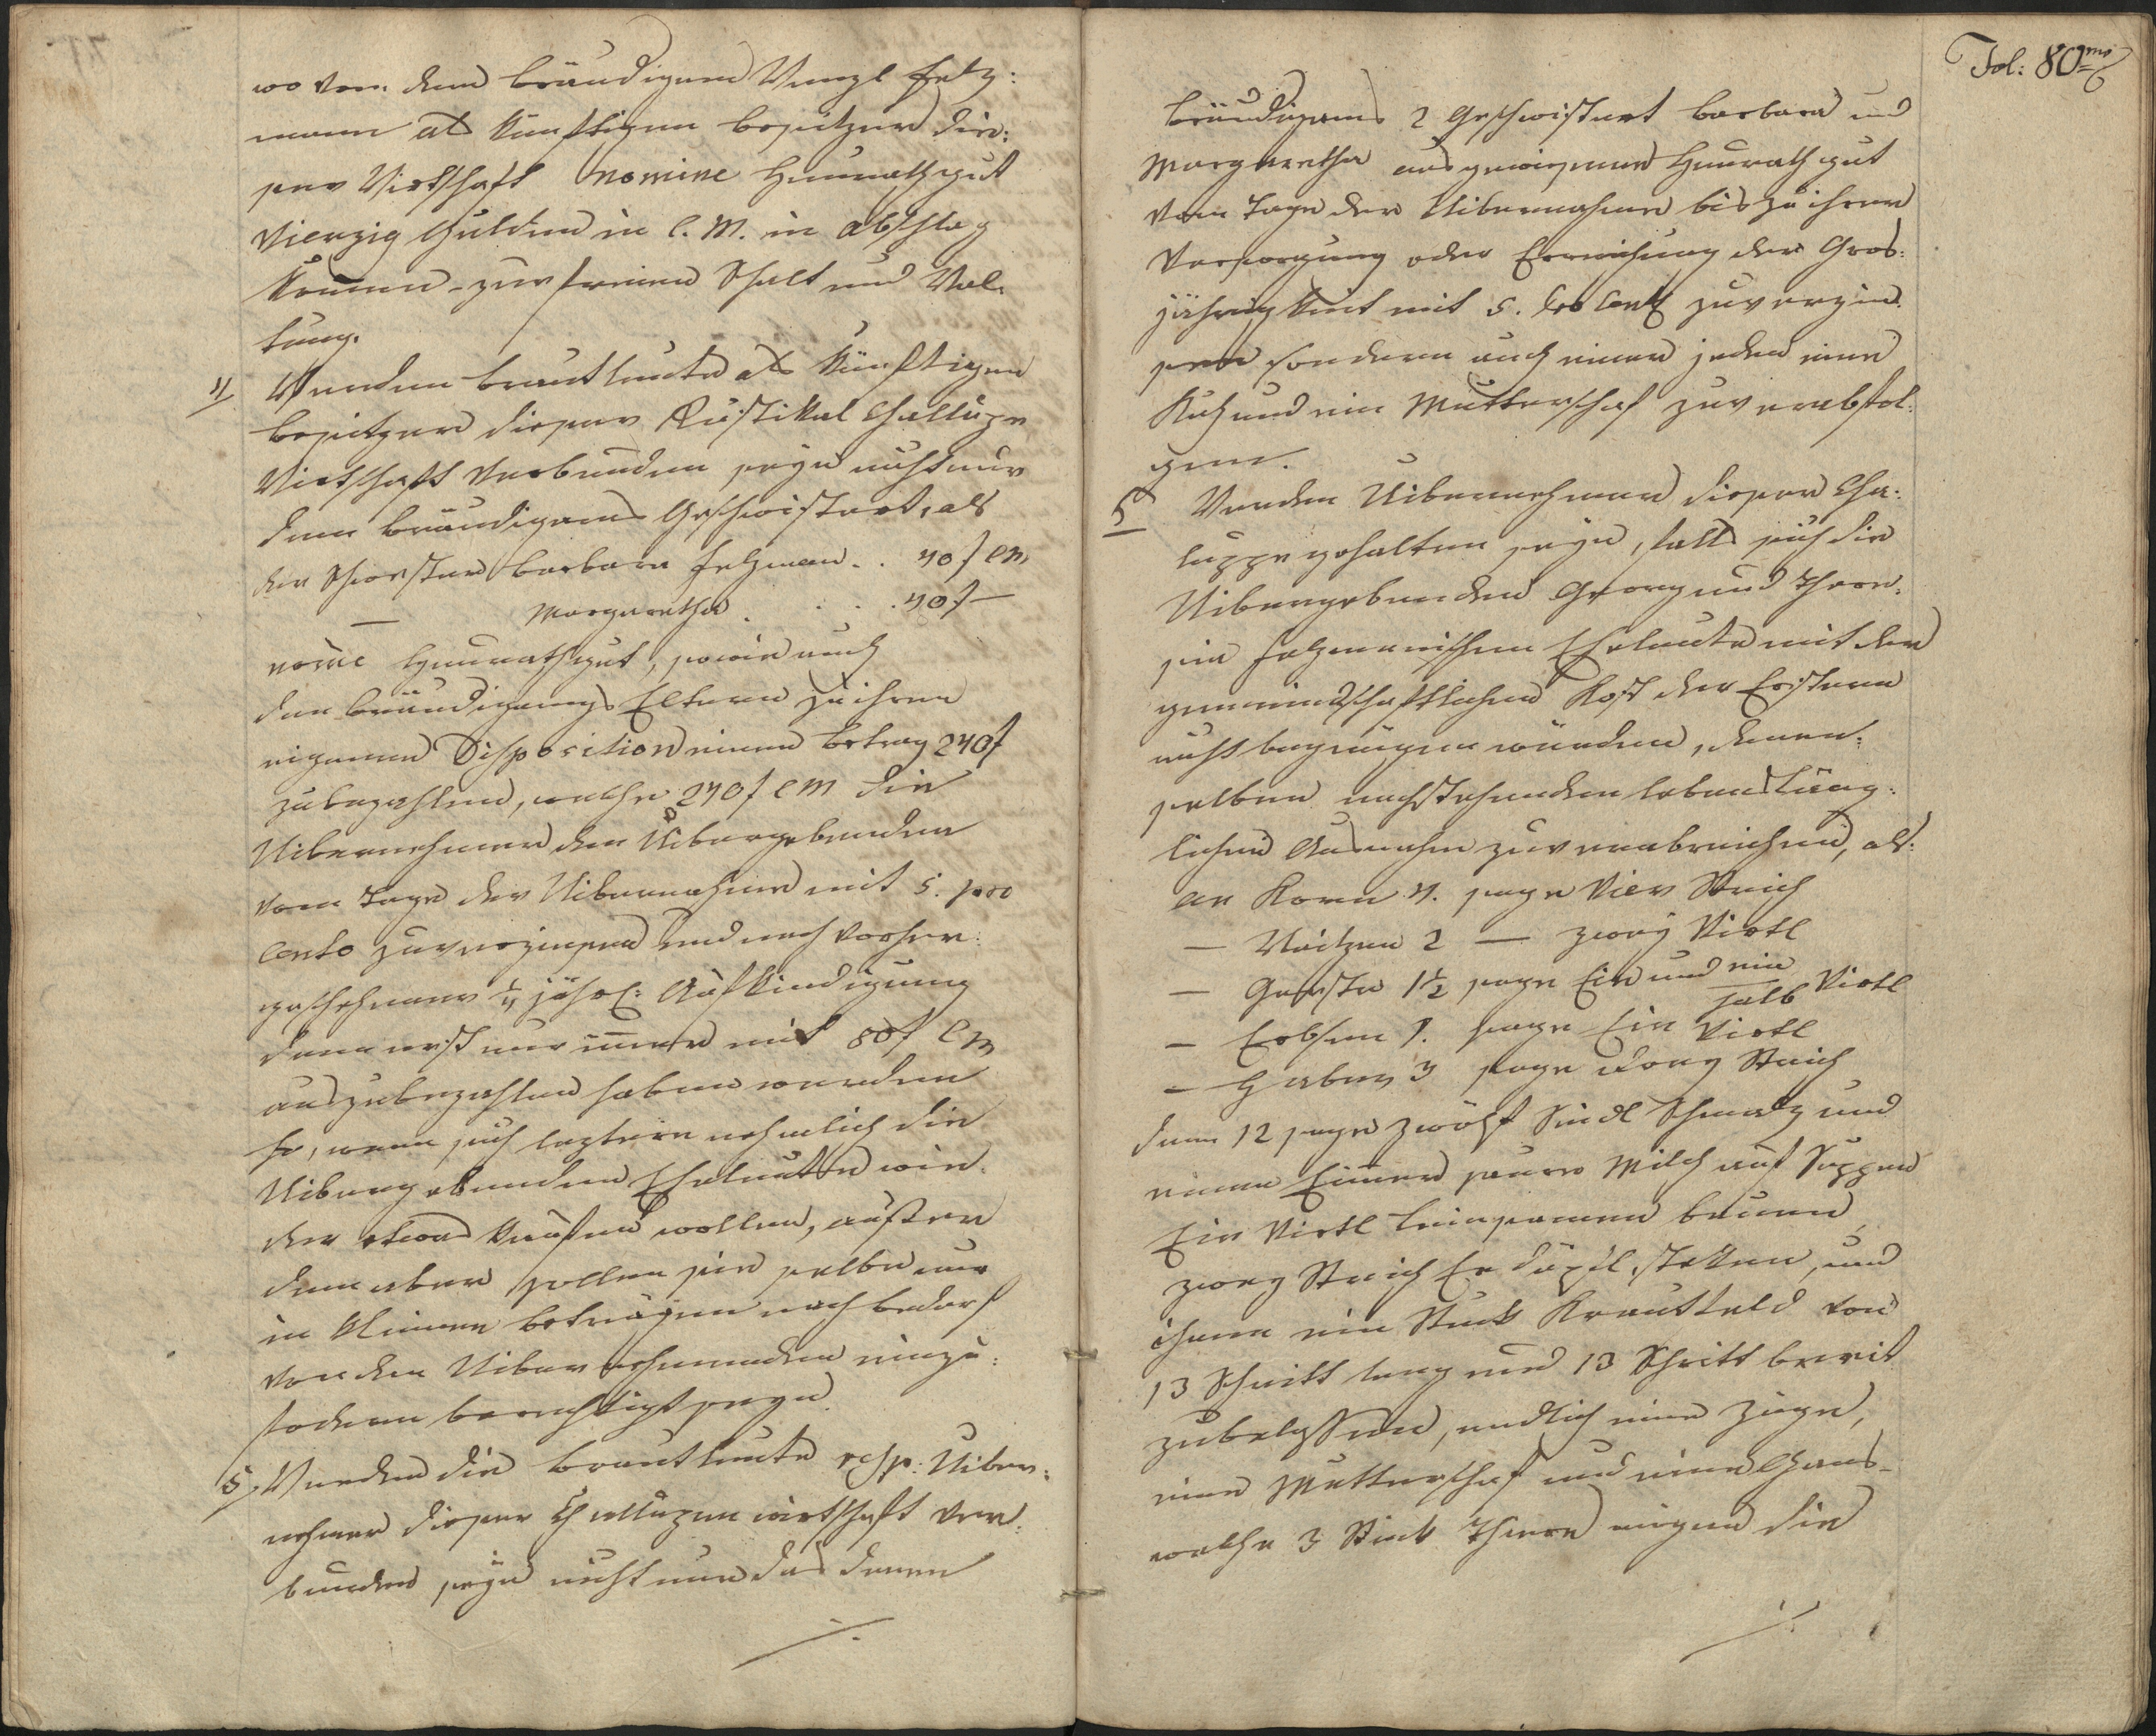 wo von dem Bräudigam Wenzl Felz:
mann als künftigen Besützer die:
ser Wirtschaft nomine Heurathgut
Vierzig Gulden in C. M. in Abschlag
komen - zur freien Schalt und Wal-
tung.
4/ Werden Brautleute als künftigen
Besützer dieser Rustikal Challupe
Wirtschaft verbunden seyn nicht nur
dem Bräudigams Geschwistert, als
der Schwester Barbara Felzman . . 40 f CM
— Margaretha . . . . 40 f —
nõie Heurathgut, sowie auch
den Bräudigams Eltern zu ihrer
eigenen Disposition einen Betrag 240 f
zubezahlen, welche 240 f CM die
Uibernehmer den Übergebenden
vom Tage der Uibernahme mit 5. pro
Cento zu verzinsen und nach vorher:
geschehener ¼ jährl: Aufkündigung
dann erst nur immer mit 80 f CM
auszubezahlen haben werden
so, wenn sich leztere nehmlich die
Uibergebenden Eheleute wie-
der etwas kaufen wollen, außer
dem aber sollen sie selbe nur
in kleinen Beträgen nach Bedarf
von den Uibernehmenden einzu:
fodern berechtigt seyn.
5/ Werden die Brautleute resp: Uiber:
nehmer dieser Challupen wirtschaft ver:
bunden seyn nicht nur das denen
./.
Fol: 80mo
Bräudigams 2 Geschwistert Barbara und
Margaretha ausgewiesene Heurathgut
vom Tage der Uibernahme bis zu ihrer
Versorgung oder Erreichung der Gros:
jährigkeit mit 5. pro Cento zu verzin-
sen sondern auch einer jeden eine
Kuh und ein Mutterschaf zu verabfol:
gen.
5 Werden Uibernehmer dieser Cha:
luppe gehalten seyn, falls sich die
Uibergebenden Georg und There:
sia Felzmanischen Eheleute mit der
gemeinschaftlichen Kost der Erstern
nicht begnügen würden, denen:
selben nachstehenden lebensläng:
lichen Ausnahm zu verabreichen, als:
an Korn 4. sage Vier Strich
— Waitzen 2 — zwey Virtl
— Gerste 1½ sage Ein und ein halb Virtl
— Erbsen 1. sage Ein Virtl
— Haber 3 sage drey Strich
dann 12 sage zwölf Seidl Schmalz und
einen Eimer saure Milch auf Suppen
Ein Virtl Leinsaamen bauen,
zwey Strich Erdäpfl steken, und
ihnen ein Stuck Krautfeld von
13 Schritt lang und 13 Schritt breit
zubelassen, endlich eine Ziege,
eine Mutterschaf und eine Gans-
welche 3 Stück Thiere wegen die
./.